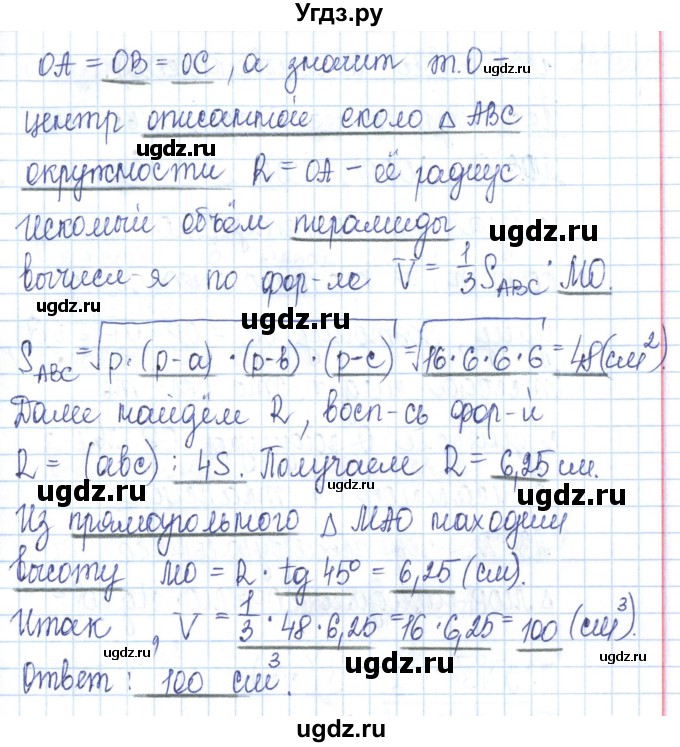 Угдз.ру
OA = OB = OC, а значит т.O –
ugdz.ru
центр описанной около △ ABC
ugdz.ru
окружности R = OA – её радиус.
Искомый объём пирамиды
ugdz.ru ugdz.ru
вычисл-я по фор-ле V = 1/3 S_ABC · MO.
ugdz.ru
S_ABC = √p · (p-a) · (p-b) · (p-c) = √16 · 6 · 6 · 6 = 48 (см²).
ugdz.ru
Далее найдём R, восп-сь фор-й
R = (abc) : 4S. Получаем R = 6,25 см.
ugdz.ru ugdz.ru
Из прямоугольного △ MAO находим
ugdz.ru
высоту MO = R · tg 45° = 6,25 (см).
ugdz.ru
Итак, V = 1/3 · 48 · 6,25 = 16 · 6,25 = 100 (см³).
ugdz.ru ugdz.ru
Ответ: 100 см³.
ugdz.ru ugdz.ru
ugdz.ru